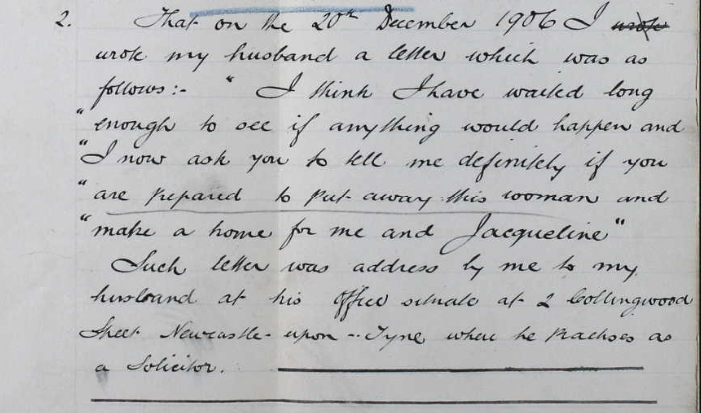 2. That on the 20th December 1906 I wrote
wrote my husband a letter which was as
follows:- " I think I have waited long
"enough to see if anything would happen and
"I now ask you to tell me definitely if you
"are prepared to put away this woman and
"make a home for me and Jacqueline"
Such letter was address by me to my
husband at his Office situate at 2 Collingwood
Street Newcastle-upon-Tyne where he practises as
a Solicitor.